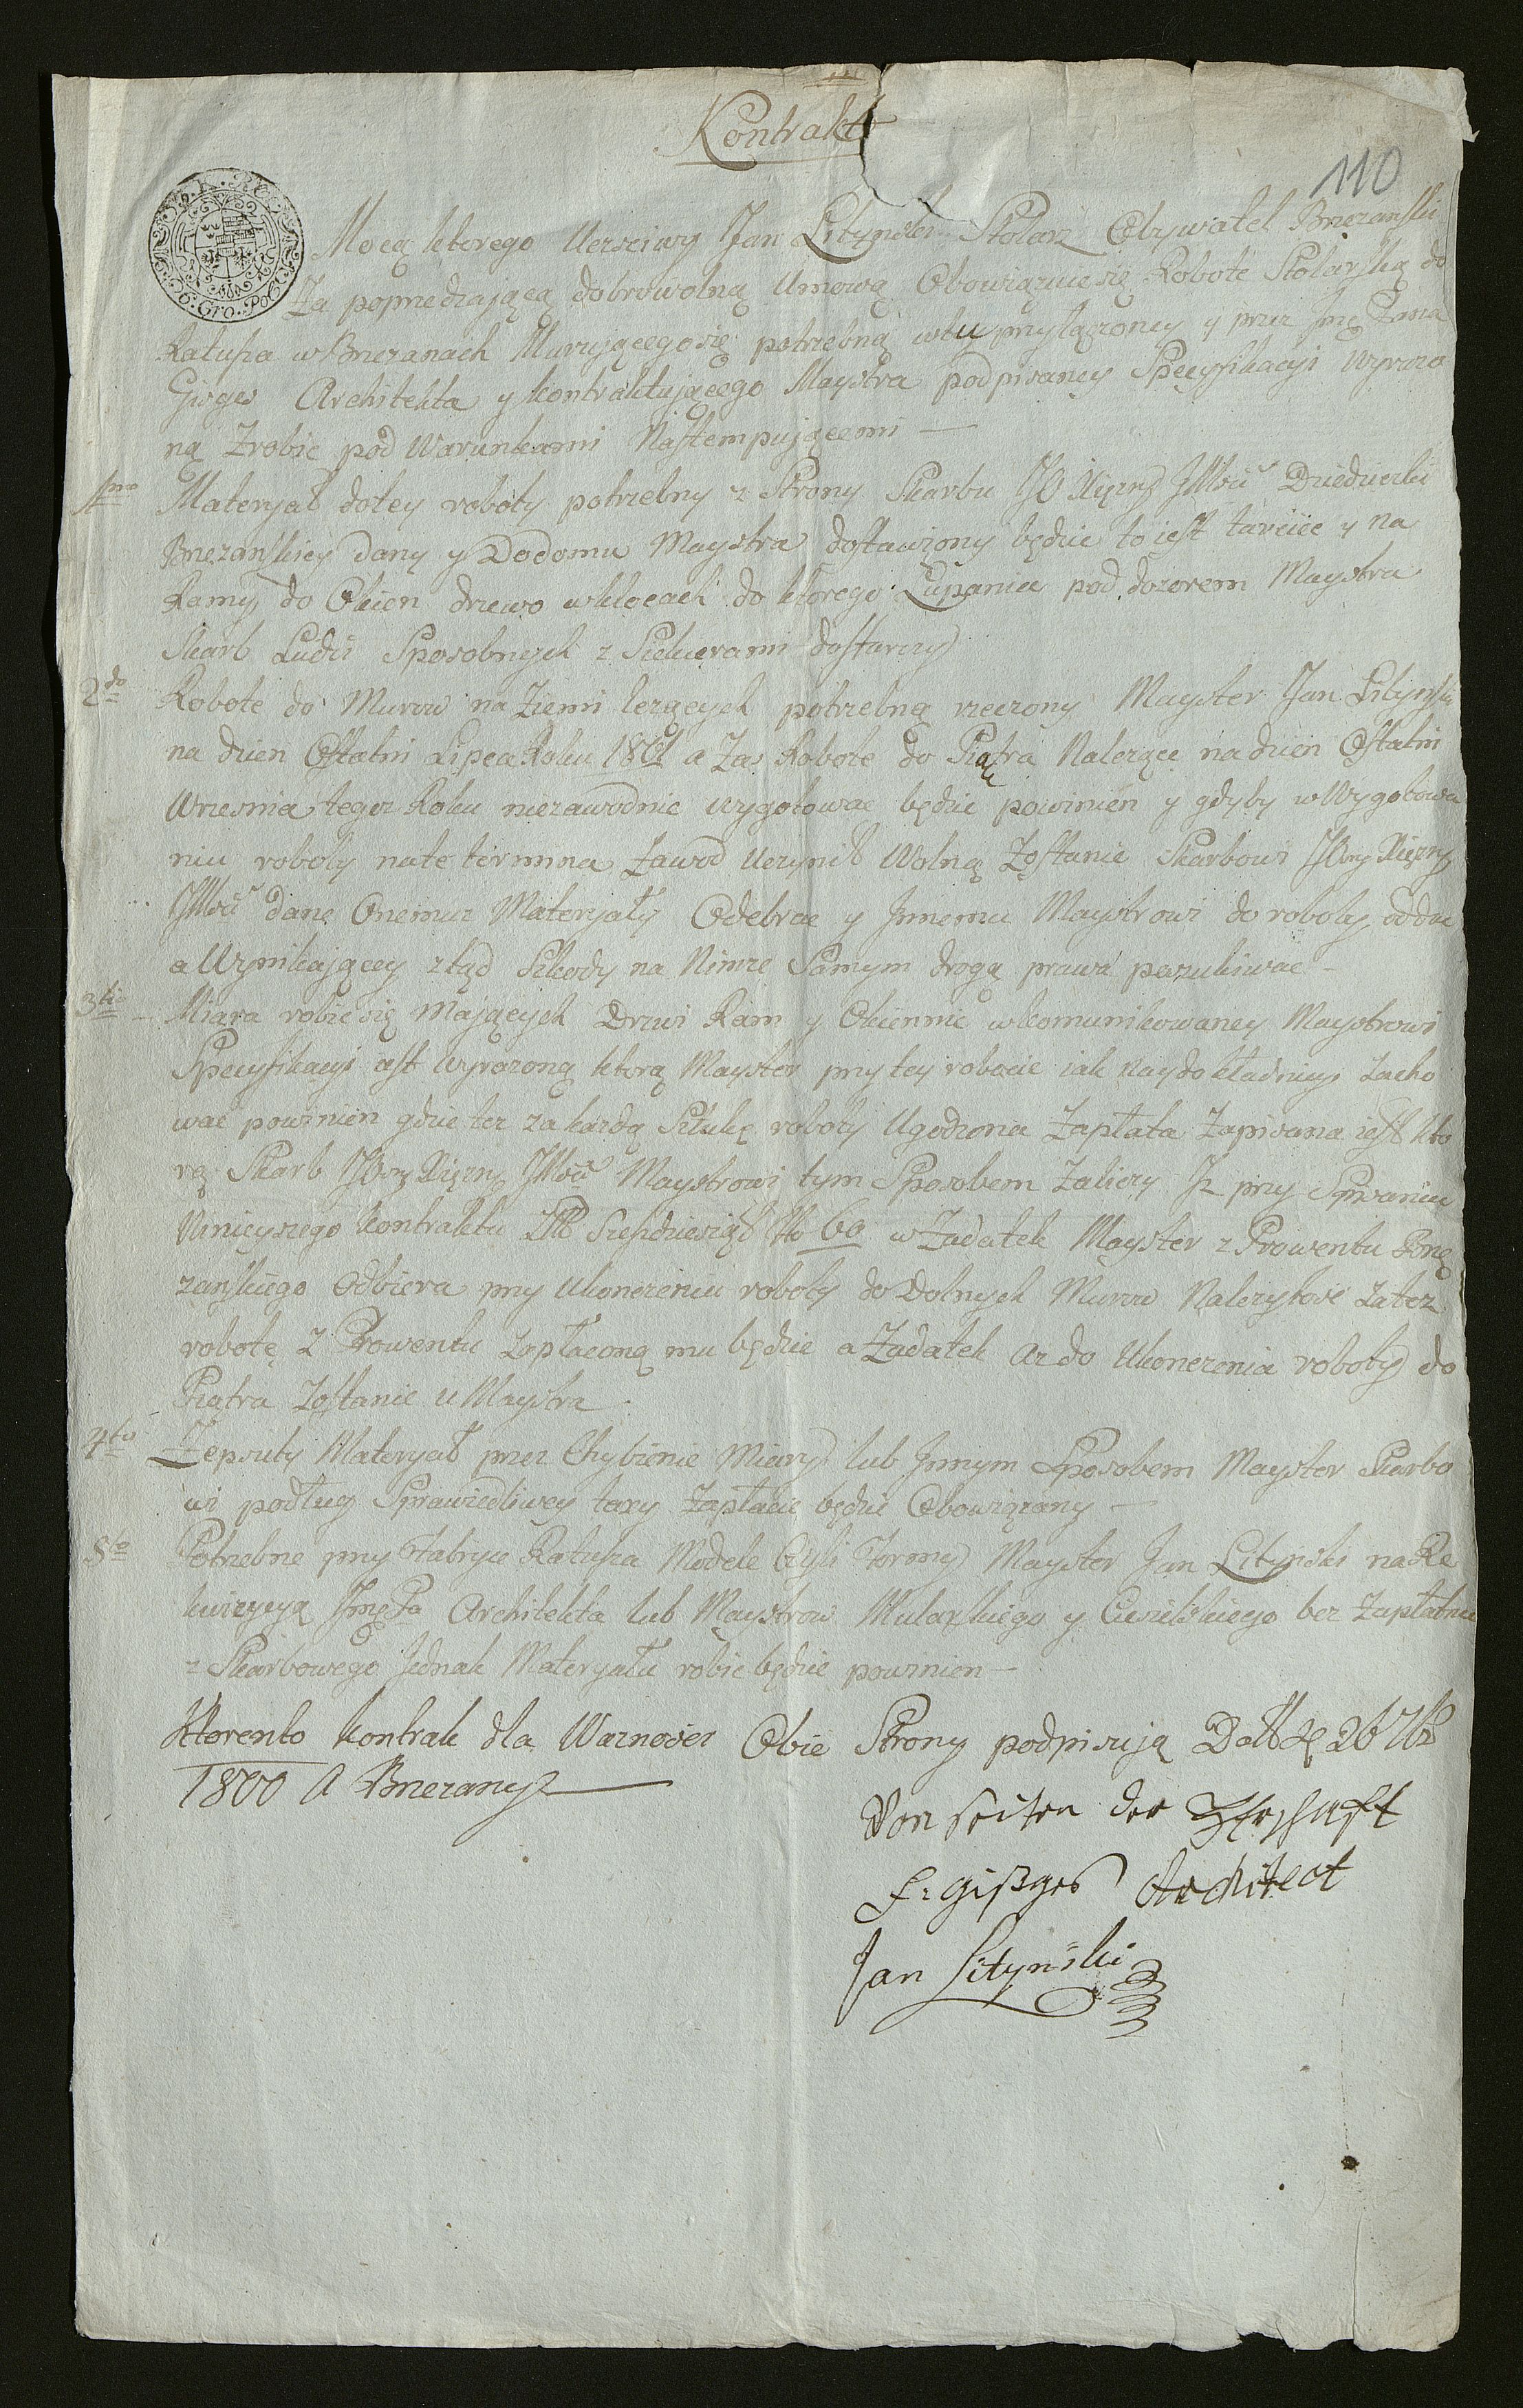 Kontrakt
110
6. Gro. Pol.
Mocą ktorego Uczciwy Jan Litynski Stolarz Obywatel Brzezanski
Za poprzedzającą dobrowolną Umową Obowiązuie się Robotę Stolarską do
Ratusza w Brzezanach Murującego się potrzebną wtey przyłączoney y przez Jmę Pana
Gisges Architekta y kontraktującego Maystra podpisaney Specyfikacyi wyrazo
ną Zrobic pod Warunkami Nastempującemi —
1mo Materyał dotey roboty potrzebny z Strony Skarbu JO Xięzny JMści Dziedziczki
Brzezanskiey dany y Dodomu Maystra dostawiony będzie to iest tarcice y na
Ramy do Okien drzewo wklocach do ktorego Łupania pod dozorem Maystra
Skarb Ludzi Sposobnych z Siekierami dostarczy
2do Robote do Murow na Ziemi lezących potrzebną rzeczony Mayster Jan Lityński
na dzien Ostatni Lipca Roku 1801 a Zas Robote do Piątra Nalezące na dzien Ostatni
Wrzesnia tegoz Roku niezawodnie wygotowac będzie powinien y gdyby w Wygotowa
niu roboty nate termina Zawod Uczynił Wolną Zostanie Skarbowi JOny Xięzny
JMści dane Onemuz Materyały Odebrac y Jnnemu Maystrowi do roboty oddac
a Wynikającey ztąd Szkody na Nimze Samym drogą prawa poszukiwac —
3tio Miara robic się Mających Drzwi Ram y Okiennic wkomunikowaney Maystrowi
Specyfikacyi iest Wyrazoną ktorą Mayster przy tey robocie iak naydokładniey Zacho
wac powinien gdzie tez za kazdą Sztukę roboty Ugodzona Zapłata Zapisana iest kto
rę Skarb JOny Xięzny JMści Maystrowi tym Sposobem Zaliczy Jz przy Spisaniu
Ninieyszego kontraktu ZłP Szesdziesiąt No 60 w Zadatek Mayster z Prowentu Brze
zanskiego Odbiera przy Ukonczeniu roboty do Dolnych Murow Nalezytosc Zatez
robotę z Prowentu zapłaconą mu będzie a Zadatek az do Ukonczenia roboty do
Piątra Zostanie u Maystra
4to Zepsuty Materyał przez Chybienie Miary lub Jnnym Sposobem Mayster Skarbo
wi podług Sprawiedliwey taxy Zapłacic będzie Obowiązany —
5to Potrzebne przy Fabryce Ratusza Modele Czyli Formy Mayster Jan Litynski na Re
kwizycyą Jmę Pa Architekta lub Maystrow Mularskiego y Ciesielskiego bez Zapłatnie
z Skarbowego Jednak Materyału robic będzie powinien —
Ktorento kontrakt dla Waznosci Obie Strony podpisują Datt d 26 7br
1800 A Brzezany
Von seiten der Herschaft
F: Gisges Architect
Jan Lityński